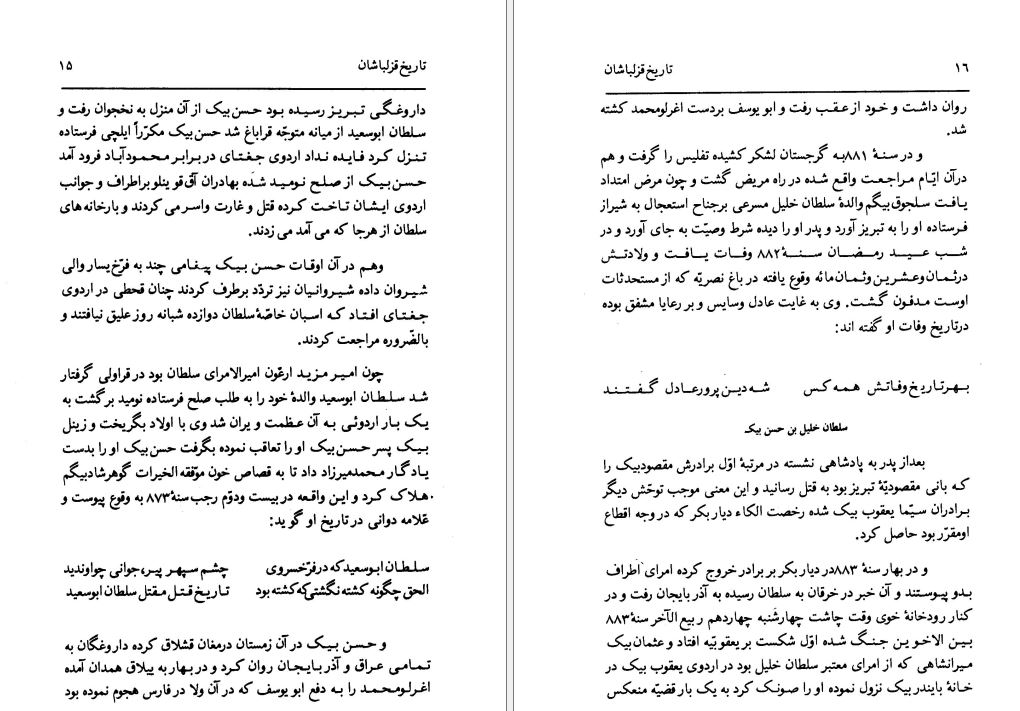 تاریخ قزلباشان ۱۵
داروغگی تبریز رسیده بود حسن بیک از آن منزل به نخجوان رفت و
سلطان ابوسعید از میانه متوجّه قراباغ شد حسن بیک مکرّراً ایلچی فرستاده
تنزل کرد فایده نداد اردوی جغتای در برابر محمودآباد فرود آمد
حسن بیک از صلح نومید شده بهادران آق قوینلو بر اطراف و جوانب
اردوی ایشان تاخت کرده قتل و غارت واسر می کردند و بارخانه های
سلطان از هرجا که می آمد می زدند.
وهم در آن اوقات حسن بیک پیغامی چند به فرّخ یسار والی
شیروان داده شیروانیان نیز تردّد برطرف کردند چنان قحطی در اردوی
جغتای افتاد که اسبان خاصّهٔ سلطان دوازده شبانه روز علیق نیافتند و
بالضّروره مراجعت کردند.
چون امیر مزید ارغون امیرالامرای سلطان بود در قراولی گرفتار
شد سلطان ابوسعید والدهٔ خود را به طلب صلح فرستاده نومید برگشت به
یک بار اردوئی به آن عظمت و یران شد وی با اولاد بگریخت و زینل
بیک پسر حسن بیک او را تعاقب نموده بگرفت حسن بیک او را بدست
یادگار محمدمیرزاد داد تا به قصاص خون موّفقه الخیرات گوهرشادبیگم
هلاک کرد و این واقعه در بیست ودوّم رجب سنهٔ ۸۷۳ به وقوع پیوست و
علامه دوانی در تاریخ او گوید:
سلطان ابوسعید که در فرّ خسروی چشم سپهر پیر، جوانی چو اوندید
الحق چگونه کشته نگشتی که کشته بود تاریخ قتل مقتل سلطان ابوسعید
و حسن بیک در آن زمستان درمغان قشلاق کرده داروغگان به
تمامی عراق و آذربایجان روان کرد و در بهار به ییلاق همدان آمده
اغرلومحمد را به دفع ابو یوسف که در آن ولا در فارس هجوم نموده بود
تاریخ قزلباشان ۱۶
روان داشت و خود از عقب رفت و ابو یوسف بردست اغرلومحمد کشته
شد.
و در سنهٔ ۸۸۱به گرجستان لشکر کشیده تفلیس را گرفت و هم
درآن ایّام مراجعت واقع شده در راه مریض گشت و چون مرض امتداد
یافت سلجوق بیگم والدهٔ سلطان خلیل مسرعی برجناح استعجال به شیراز
فرستاده او را به تبریز آورد و پدر او را دیده شرط وصیّت به جای آورد و در
شب عید رمضان سنهٔ ۸۸۲ وفات یافت و ولادتش
درثمان وعشرین وثمان مائه وقوع یافته در باغ نصریّه که از مستحدثات
اوست مدفون گشت. وی به غایت عادل وسایس و بر رعایا مشفق بوده
درتاریخ وفات او گفته اند:
بهرتاریخ وفاتش همه کس شه دین پرور عادل گفتند
سلطان خلیل بن حسن بیک
بعداز پدر به پادشاهی نشسته در مرتبهٔ اوّل برادرش مقصودبیک را
که بانی مقصودیّهٔ تبریز بود به قتل رسانید و این معنی موجب توحّش دیگر
برادران سیّما یعقوب بیک شده رخصت الکاء دیار بکر که در وجه اقطاع
اومقرّر بود حاصل کرد.
و در بهار سنهٔ ۸۸۳در دیار بکر بر برادر خروج کرده امرای اطراف
بدو پیوستند و آن خبر در خرقان به سلطان رسیده به آذربایجان رفت و در
کنار رودخانهٔ خوی وقت چاشت چهارشنبه چهاردهم ربیع الآخر سنهٔ ۸۸۳
بین الاخوین جنگ شده اوّل شکست بر یعقوبیّه افتاد و عثمان بیک
میرانشاهی که از امرای معتبر سلطان خلیل بود در اردوی یعقوب بیک در
خانهٔ بایندر بیک نزول نموده او را صونک کرد به یک بار قضیّه منعکس